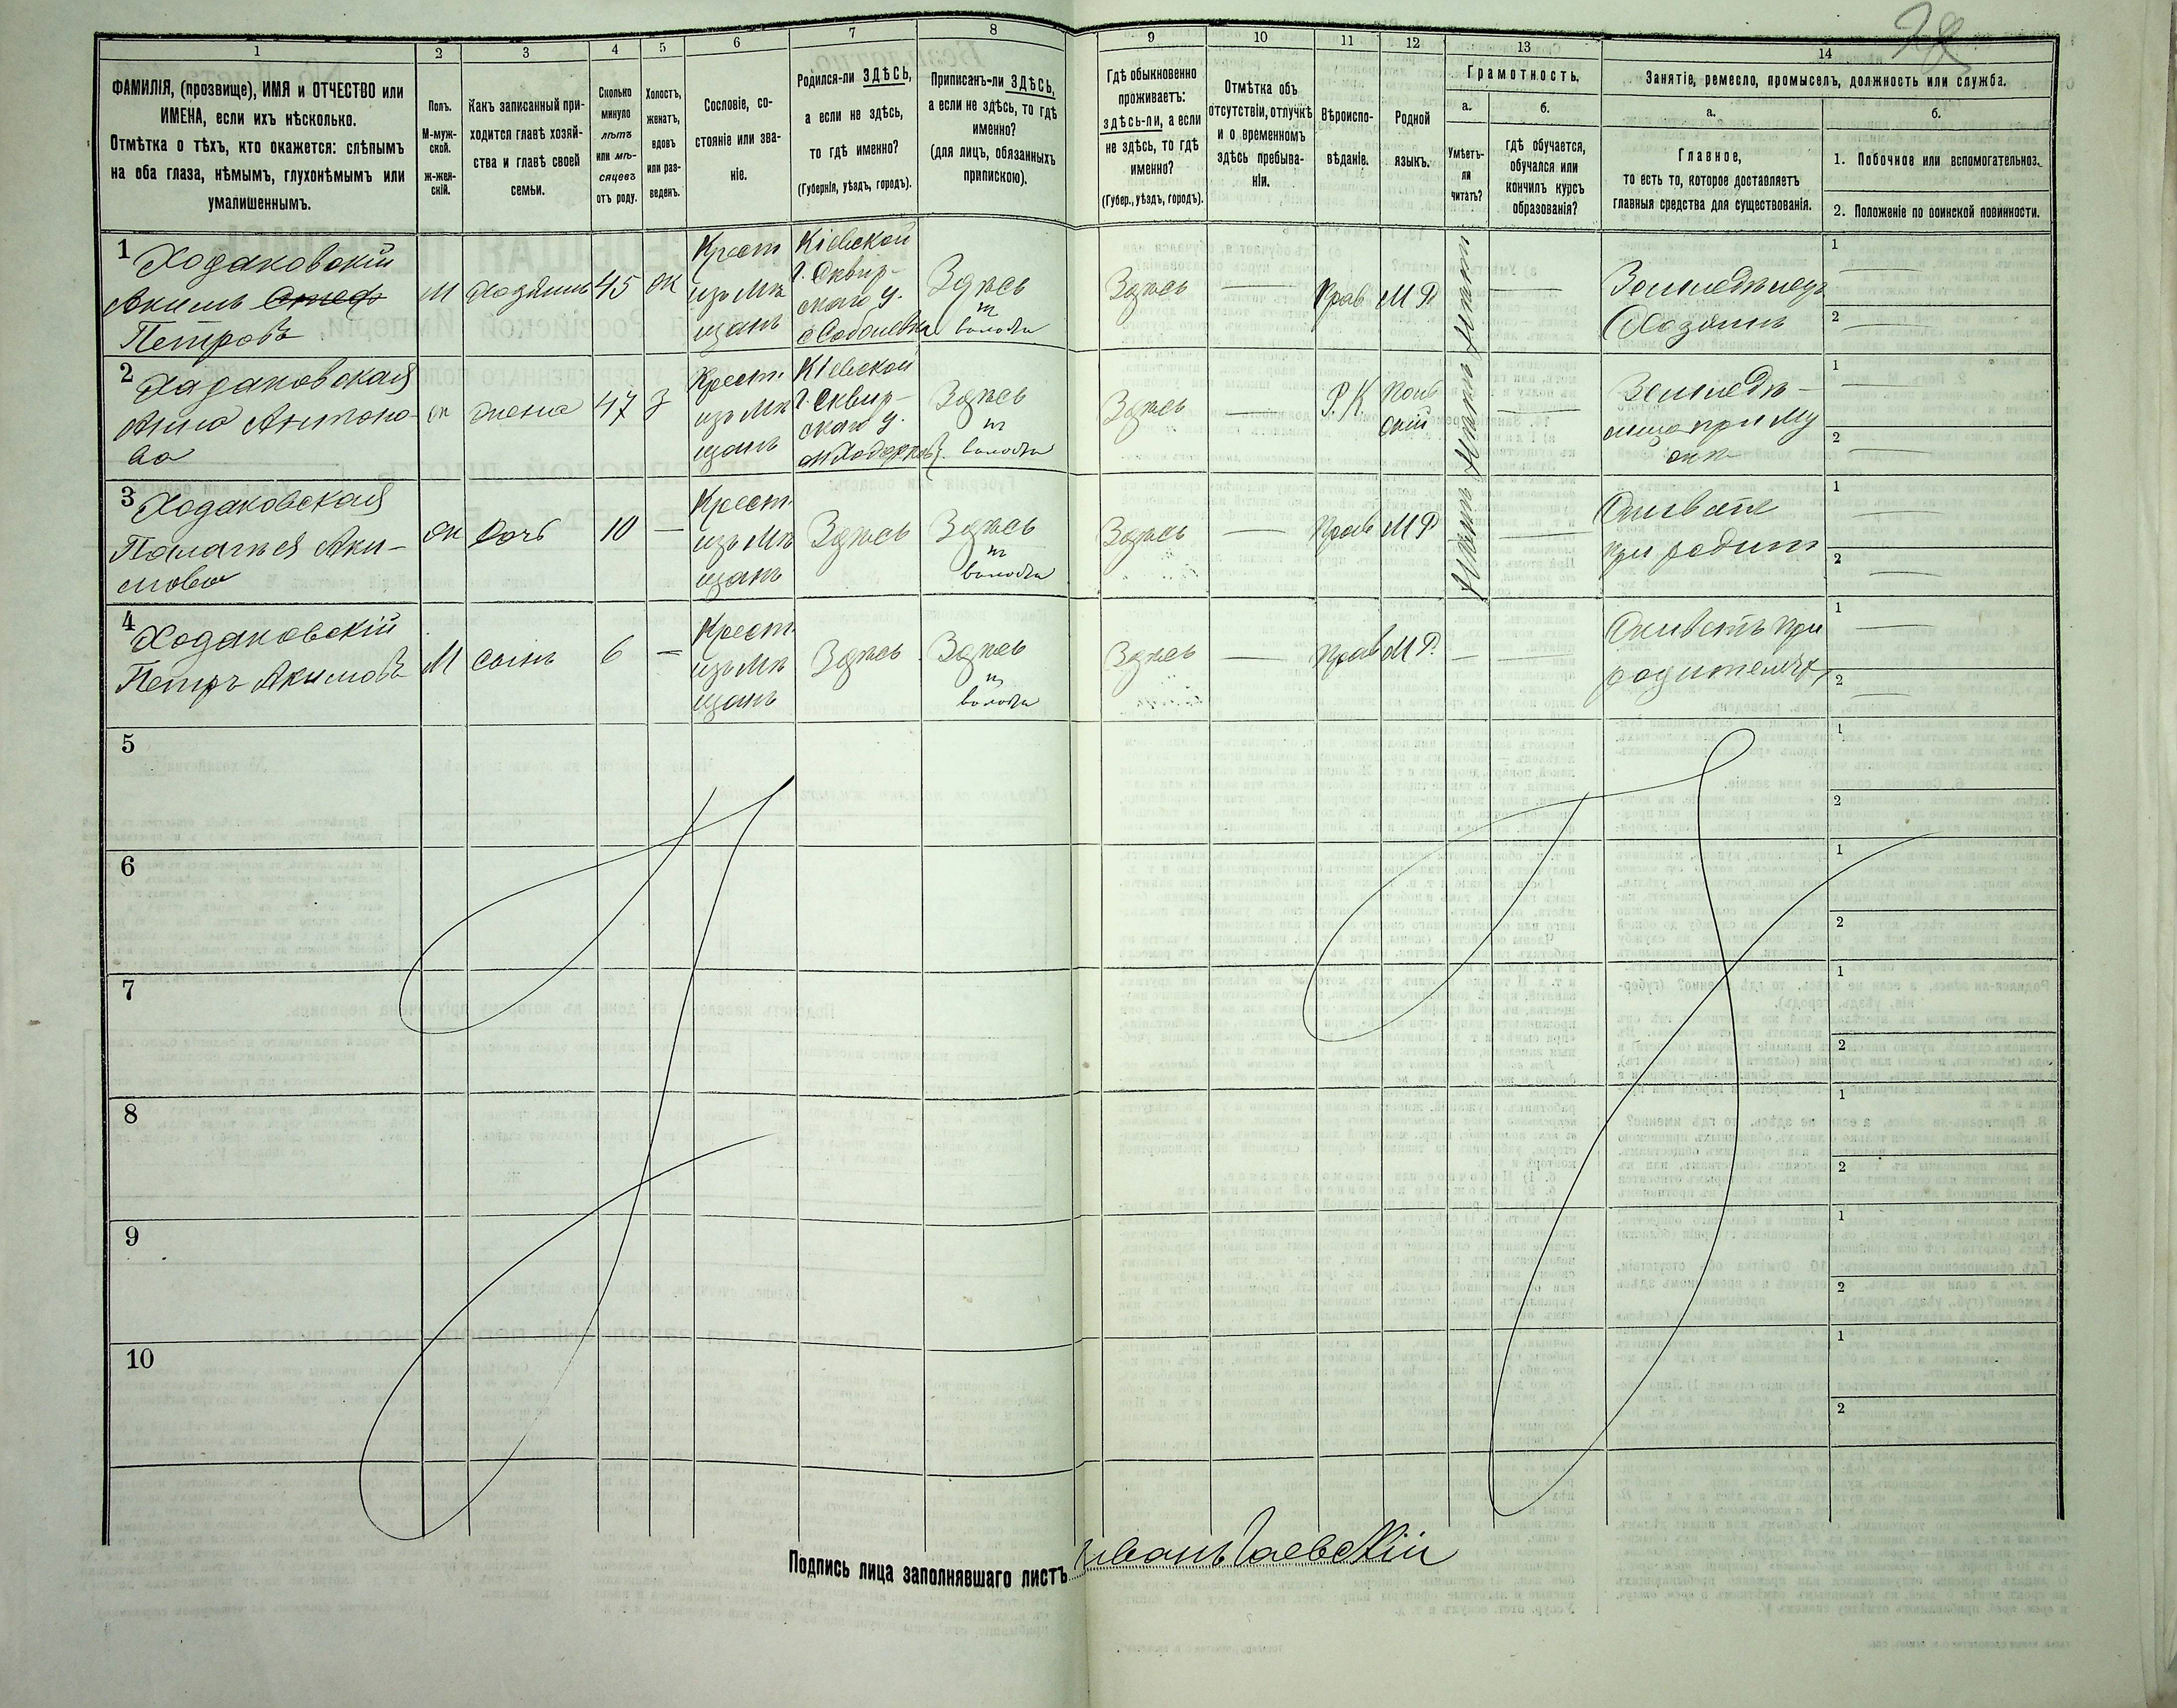 1 2 3 4 5 6 7 8 9 10 11 12 13 14
ФАМИЛІЯ, (прозвище), ИМЯ и ОТЧЕСТВО или
ИМЕНА, если ихъ нѣсколько.
Отмѣтка о тѣхъ, кто окажется: слѣпымъ
на оба глаза, нѣмымъ, глухонѣмымъ или
умалишеннымъ.
Полъ.
М-муж-
ской.
Ж-жен-
скій.
Какъ записанный при-
ходится главѣ хозяй-
ства и главѣ своей
семьи.
Сколько
минуло
лѣтъ
или мѣ-
сяцевъ
отъ роду.
Холостъ,
женатъ,
вдовъ
или раз-
веденъ.
Сословіе, со-
стояніе или зва-
ніе.
Родился-ли ЗДѢСЬ,
а если не здѣсь,
то гдѣ именно?
(Губернія, уѣздъ, городъ).
Приписанъ-ли ЗДѢСЬ,
а если не здѣсь, то гдѣ
именно?
(для лицъ, обязанныхъ
припискою).
Гдѣ обыкновенно
проживаетъ:
здѣсь-ли, а если
не здѣсь, то гдѣ
именно?
(Губер., уѣздъ, городъ).
Отмѣтка объ
отсутствіи, отлучкѣ
и о временномъ
здѣсь пребыва-
ніи.
Вѣроиспо-
вѣданіе.
Родной
языкъ.
Грамотность.
а.
Умѣетъ-
ли
читать?
б.
гдѣ обучается,
обучался или
кончилъ курсъ
образованія?
Занятіе, ремесло, промыселъ, должность или служба.
а.
Главное,
то есть то, которое доставляетъ
главныя средства для существованія.
б.
1. Побочное или вспомогательное.
2. Положеніе по воинской повинности.
1 Ходаковскій
Акимъ
Петровъ
М
Хозяинъ
45
ж
Крест
изъ мѣ
щанъ
Кіевской
г. Сквир-
скаго у.
Здѣсь
Здѣсь
—
Прав
М Р
Нѣтъ
—
Земледѣлецъ
(Хозяинъ
1 —
2 —
2 Хадаковская
Анна Антоно-
ва
ж
жена
47
з
Крест.
изъ мѣ
щанъ
Кіевской
г. Сквир-
скаго у.
Здѣсь
Здѣсь
—
Р. К
Поль
скій
Нѣтъ
—
Земледѣ-
лица при му
жѣ
1 —
2 —
3 Ходаковская
Пелагея Аки-
мова
ж
дочь
10
—
Крест.
изъ мѣ
щанъ
Здѣсь
Здѣсь
Здѣсь
—
Прав
М Р
Нѣтъ
—
при родит
1 —
2 —
4 Ходаковскій
Петръ Акимовъ
М
сынъ
6
—
Крест.
изъ мѣ
щанъ
Здѣсь
Здѣсь
Здѣсь
—
Прав
М Р.
—
—
Живетъ при
родителяхъ
1 —
2 —
5
1
2
6
1
2
7
1
2
8
1
2
9
1
2
10
1
2
Подпись лица заполнявшаго листъ Иванъ Гаевскій